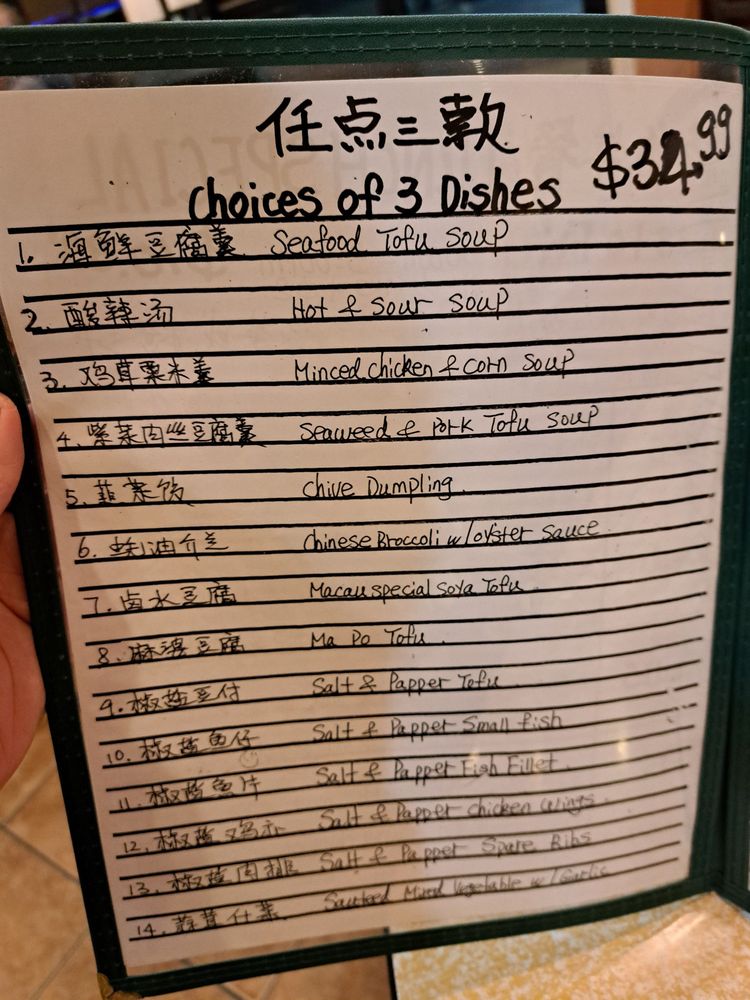 任点三款
$34.99
Choices of 3 Dishes
1. 海鲜豆腐羹 Seafood Tofu Soup
2. 酸辣汤 Hot & Sour Soup
3. 鸡茸粟米羹 Minced chicken & corn Soup
4. 紫菜肉丝豆腐羹 Seaweed & Pork Tofu Soup
5. 韮菜饺 Chive Dumpling
6. 蚝油介兰 Chinese Broccoli w/ oyster Sauce
7. 卤水豆腐 Macau special Soya Tofu
8. 麻婆豆腐 Ma Po Tofu
9. 椒盐豆付 Salt & Papper Tofu
10. 椒盐魚仔 Salt & Papper Small fish
11. 椒盐魚片 Salt & Papper Fish Fillet
12. 椒盐鸡 Salt & Papper chicken wings
13. 椒盐肉排 Salt & Papper Spare Ribs
14. 蒜茸什菜 Sauteed Mixed Vegetable w/ Garlic